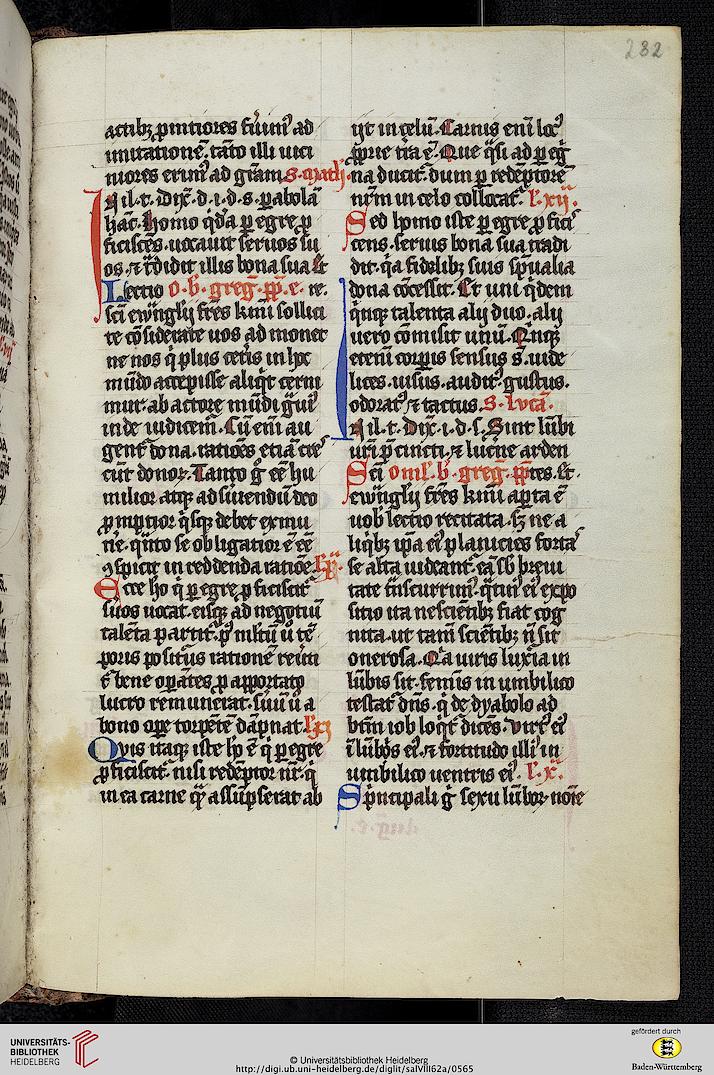 232
actibꝫ ꝓmtiores fuim᷒ ad
imitationē. tāto illi uici
niores erim᷒ ad gr̄am. S. math.
In il. t. Dix̄. d. i. d. s. parabolā
hāc. Homo q̄da ꝑegre ꝓ
ficiscēs. uocauit seruos su
os. ⁊ tͬdidit illis bona sua. Et
Lectio o. b. greg. pp̄. e. re.
sc̄i ew̄nglij fr̄es kmi sollici
te cōsiderate uos admonet
ne nos q̇ plus cet̄is in hͦc
mūdo accepisse aliq͛t cerni
mur. ab actore mūdi g͛ui᷒
inde iudicem᷒. Cū eni᷒ au
gent͛ dona. rationēs etiā cre
scūt donoꝝ. Tanto g͛ eē hu
milior atqꝫ ad seruiendū deo
ꝓmptior q̇sqꝫ debet ex mu
ne. q͛nto se obligatiorē eē
ꝯspicit in reddenda ratiōe. l'. x.
Ecce hō q̇ ꝑegre ꝓficiscit͛
suos uocat. eisqꝫ ad negotiū
talēta partit͛. pͦ mltū ū tē
poris positurus rationē reuti
t͛ bene opātes ꝑ apportato
lucro remunerat. suū ū a
bono ope torpētē dāpnat. l'. xi
Quis itaqꝫ iste hō ē q̇ ꝑegre
ꝓficiscit͛. nisi redēptor nr̄. q̇
in ea carne q͛ assūpserat ab
ijt in celū. Carnis eni᷒ loc᷒
ꝓprie tr̄a ē. Que q͛si ad ꝑeg͛
na ducit͛. dum ꝑ redēptorē
nr̄m in celo collocat͛. l'. xij.
Sed homo iste ꝑegre ꝓfici
scens. seruis bona sua tradi
dit. q͛a fidelibꝫ suis sp̄ualia
dona cōcessit. Et uni q͛dem
q̇nqꝫ talenta alij duo. alij
uero cōmisit unū. Quinqꝫ
etenī corꝑis sensus s̄. uide
licet. uisus. audit᷒. gustus.
odorat᷒ ⁊ tactus. S. lvcā.
In il. t. Dix̄. i. d. s. Sint lūbi
ur̄i p̄cincti. ⁊ lucerne arden
Sc̄i omī. b. greg. pp̄ tes. Et.
ew̄nglij fr̄es kmi apta ē
uob᷒ lectio recitata. sꝫ ne a
liq̇bꝫ ip̄a ei᷒ planicies forta
se alta uideant͛. eā sb̄ breui
tate trāscurrim᷒. q̄tin᷒ ei᷒ expo
sitio ita nescientibꝫ fiat cog
nita. ut tam̄ scientibꝫ n̄ sit
onerosa. Q͛a uiris luxͥa in
lūbis sit. feminis in umbilico
testat͛ dn̄s. q̇ de dyabolo ad
btm̄ iob loq͛t᷒ dicēs. Virt᷒ ei᷒
ī lūbis ei᷒. ⁊ fortitudo illi᷒ in
umbilico uentris ei᷒. l'. x.
Principali g͛ sexu lūboꝝ noīe
UNIVERSITÄTS-
BIBLIOTHEK
HEIDELBERG
© Universitätsbibliothek Heidelberg
http://digi.ub.uni-heidelberg.de/diglit/salVIII62a/0565
gefördert durch
Baden-Württemberg